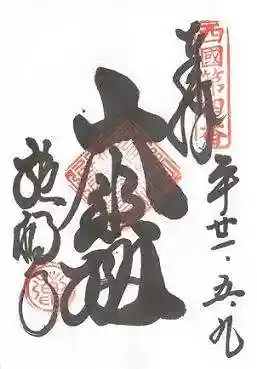 西國第四番
奉拝
平廿一・五・九
大悲
施福寺